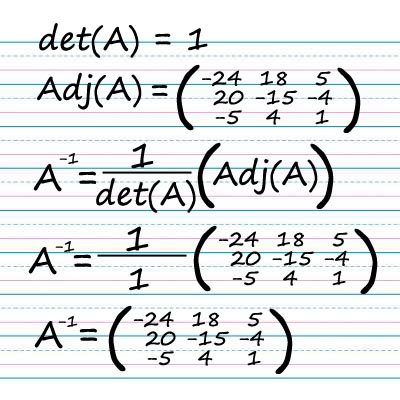 det(A) = 1
Adj(A) = (-24 18 5
20 -15 -4
-5 4 1)
A⁻¹ = 1/det(A) (Adj(A))
A⁻¹ = 1/1 (-24 18 5
20 -15 -4
-5 4 1)
A⁻¹ = (-24 18 5
20 -15 -4
-5 4 1)